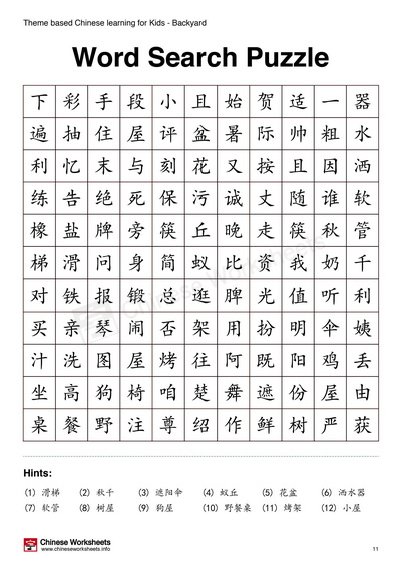 Theme based Chinese learning for Kids - Backyard
Word Search Puzzle
下 彩 手 段 小 且 始 贺 适 一 器
遍 抽 住 屋 评 盆 暑 际 帅 粗 水
利 忆 末 与 刻 花 又 按 且 因 洒
练 告 绝 死 保 污 诚 丈 随 谁 软
橡 盐 牌 旁 筷 丘 晚 走 筷 秋 管
梯 滑 问 身 简 蚁 比 资 我 奶 千
对 铁 报 锻 总 逛 脾 光 值 听 利
买 亲 琴 闹 否 架 用 扮 明 伞 姨
汁 洗 图 屋 烤 往 阿 既 阳 鸡 丢
坐 高 狗 椅 咱 楚 舞 遮 份 屋 由
桌 餐 野 注 尊 绍 作 鲜 树 严 获
Hints:
(1) 滑梯 (2) 秋千 (3) 遮阳伞 (4) 蚁丘 (5) 花盆 (6) 洒水器
(7) 软管 (8) 树屋 (9) 狗屋 (10) 野餐桌 (11) 烤架 (12) 小屋
Chinese Worksheets
www.chineseworksheets.info
11